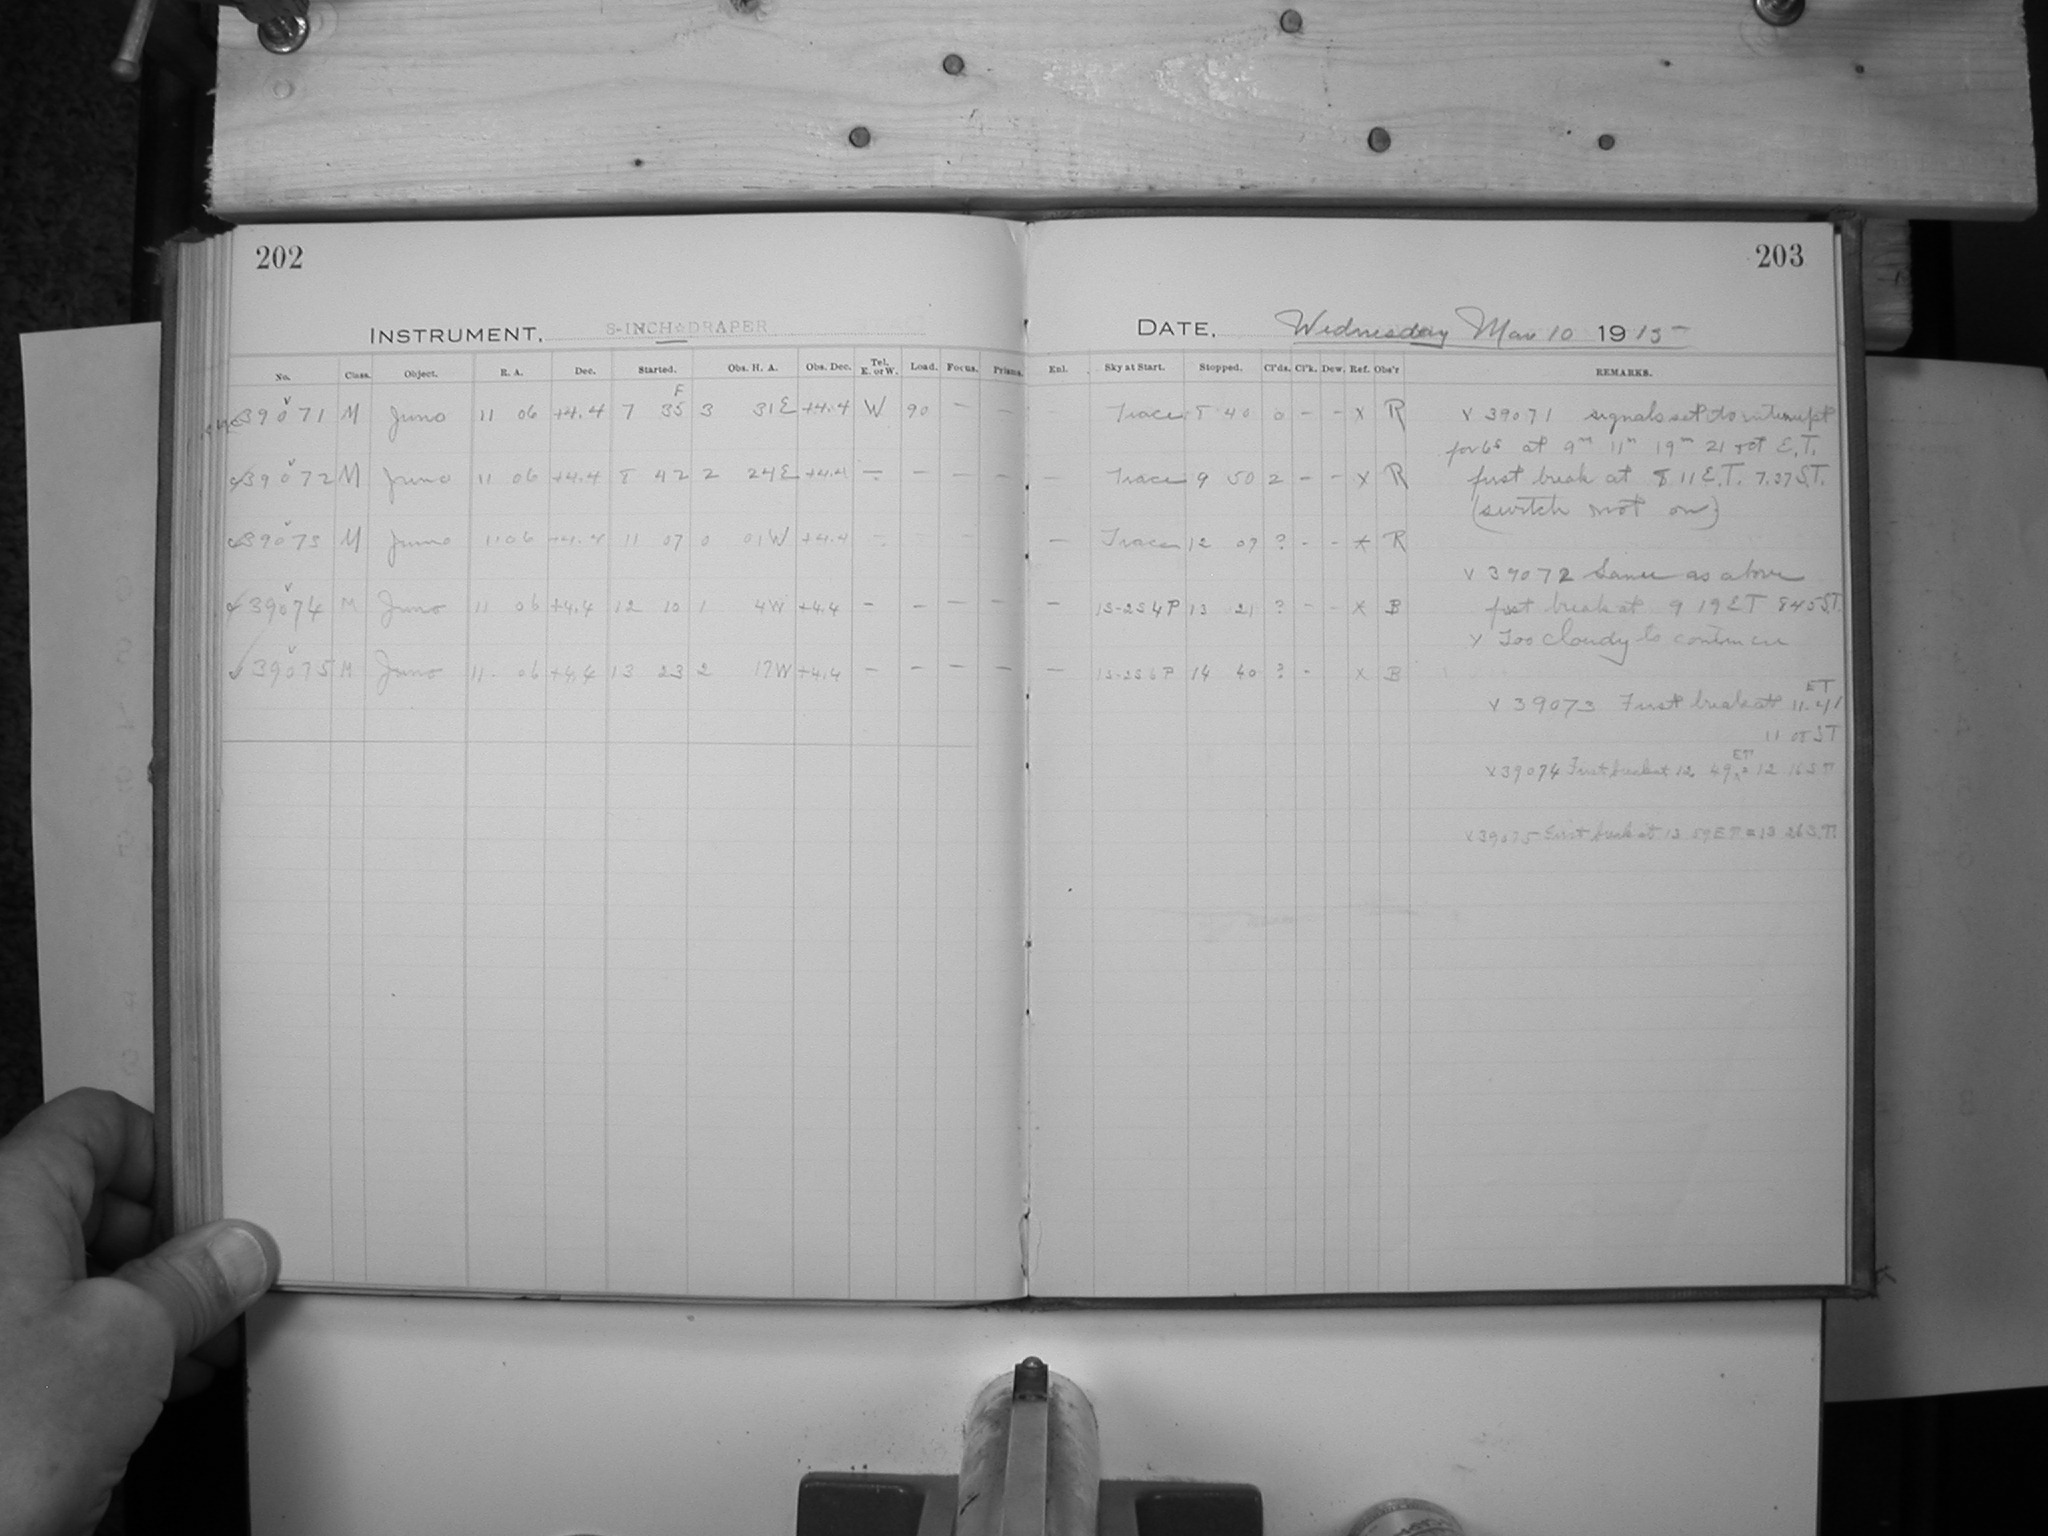 202
203
INSTRUMENT. 8-INCH DRAPER
DATE. Wednesday Mar 10 1915
No. Class. Object. R. A. Dec. Started. Obs. H. A. Obs. Dec. Tel. E. or W. Load. Focus. Prisms. Enl. Sky at Start. Stopped. Cl'ds. Cl'k. Dew. Ref. Obs'r REMARKS.
F
39071 M Juno 11 06 +4.4 7 35 3 31E +4.4 W 90 — — Trace 8 40 0 - - x R
39072 M Juno 11 06 +4.4 8 42 2 24E +4.4 — — — — — Trace 9 50 2 - - x R
39073 M Juno 11 06 +4.4 11 07 0 01W +4.4 — Trace 12 07 ? - - x R
39074 M Juno 11 06 +4.4 12 10 1 4W +4.4 — — — — — 13 21 ? - - x B
39075 M Juno 11 06 +4.4 13 23 2 17W +4.4 — — — — — 14 40 ? - x B
v 39071 signals set to interrupt
for 6s at 9m 11m 19m 21 E.T.
first break at 8 11 E.T. 7.37 S.T.
(switch not on)
v 39072 Same as above
first break at 9 19 ET 845 S.T.
x Too cloudy to continue
v 39073 First break at 11.41 ET
11 05 ST
v 39074 First break at 12 49 ET = 12 16 S.T.
v 39075 First break at 13 59 E.T. = 13 26 S.T.